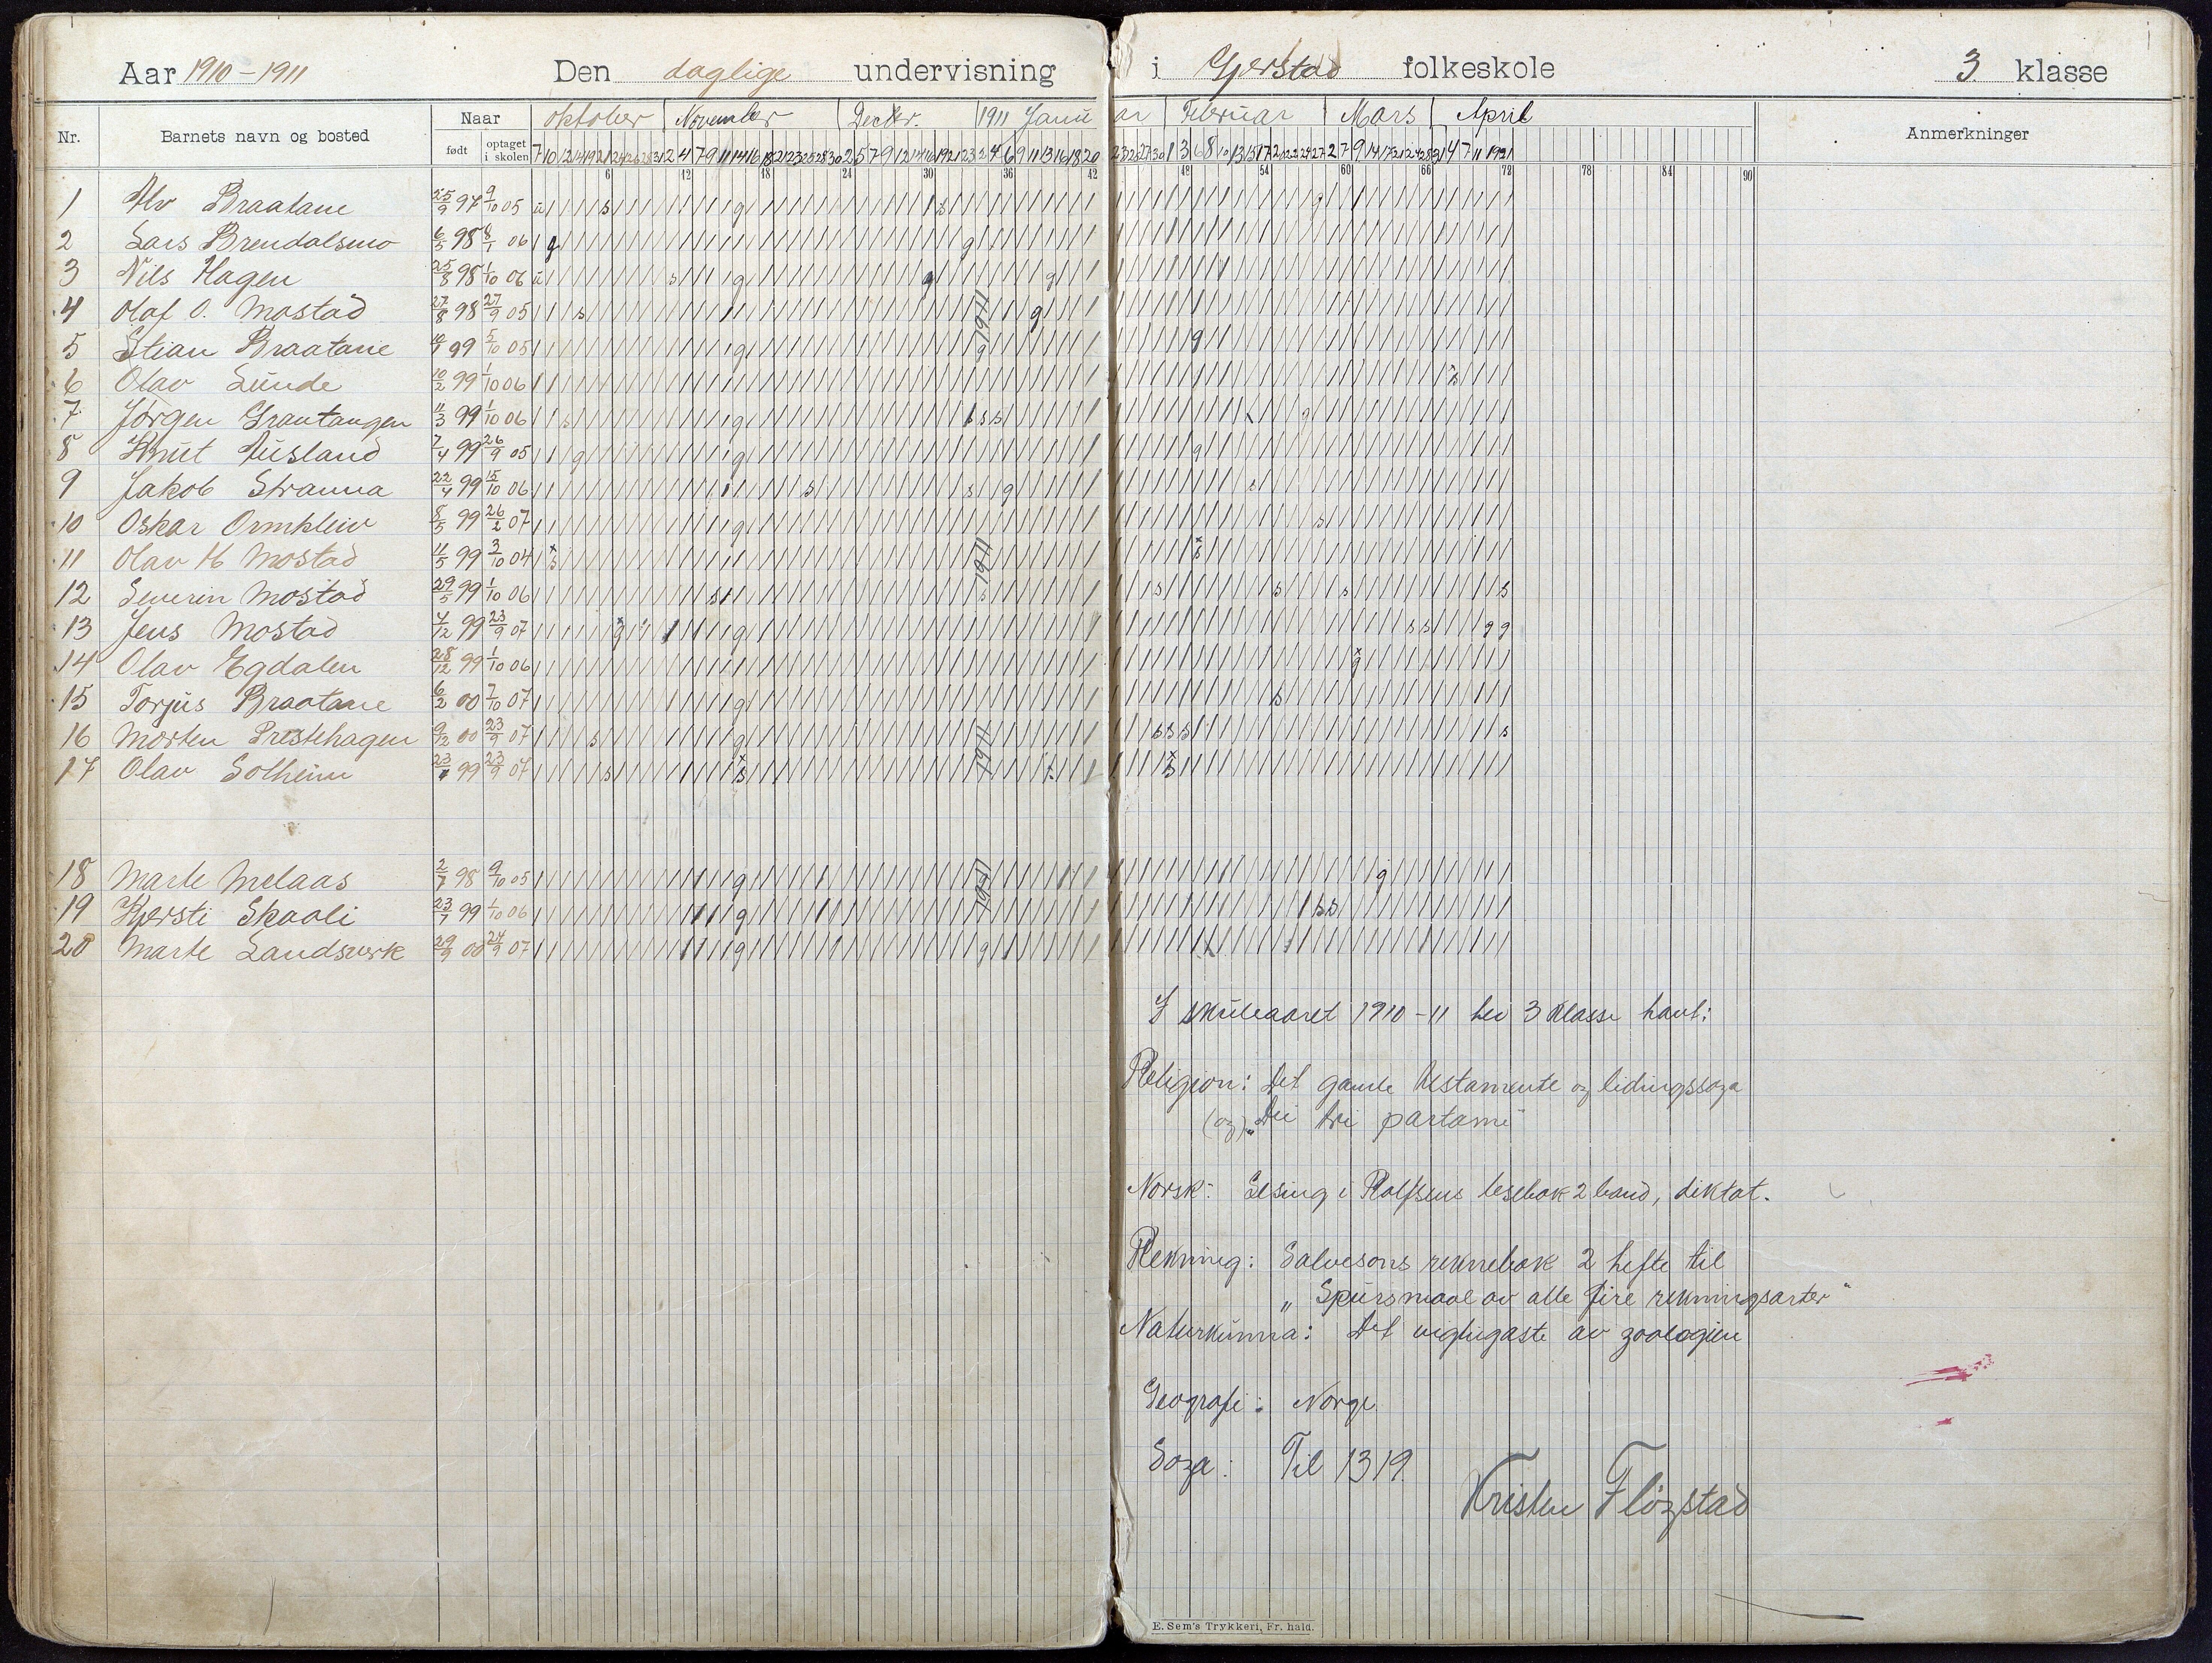 Aar 1910-1911 Den daglige undervisning i Gjerstad folkeskole 3 klasse
Nr. Barnets navn og bosted Naar født optaget i skolen oktober November Decbr. 1911 Januar Februar Mars April Anmerkninger
6 12 18 24 30 36 42 48 54 60 66 72 78 84 90
1 Alv Braatane 25/9 97 9/10 05
2 Lars Brendalsmo 6/5 98 8/1 06
3 Nils Hagen 25/8 98 1/10 06
4 Olaf O. Mostad 27/8 98 27/9 05
5 Stian Braatane 99 5/10 05
6 Olav Lunde 10/2 99 1/10 06
7 Jørgen Grantangen 11/3 99 1/10 06
8 Knut Ausland 7/4 99 26/9 05
9 Jakob Stranna 22/4 99 15/10 06
10 Oskar Ormkleiv 8/5 99 26/2 07
11 Olav H Mostad 11/5 99 3/10 04
12 Severin Mostad 29/5 99 1/10 06
13 Jens Mostad 4/12 99 23/9 07
14 Olav Egdalen 28/12 99 1/10 06
15 Torjus Braatane 6/2 00 7/10 07
16 Morten Prestehagen 9/12 00 23/9 07
17 Olav Solheim 99 23/9 07
18 Marte Melaas 2/7 98 9/10 05
19 Kjersti Skaali 23/7 99 1/10 06
20 Marte Landsverk 29/9 00 24/9 07
I skuleaaret 1910-11 hev 3 klasse havt:
Religion: Det gamle testamente og lidingssoga
(og) "Dei tri partarne"
Norsk: Lesing i Rolfsens lesebok 2 band, diktat.
Rekning: Salvesons reknebok 2 hefte til
"Spursmaal av alle fire rekningsarter"
Naturkunna: Det vigtigaste av zoologien
Geografi: Norge
Soga: Til 1319.
Kristen Fløgstad
E. Sem's Trykkeri, Fr. hald.